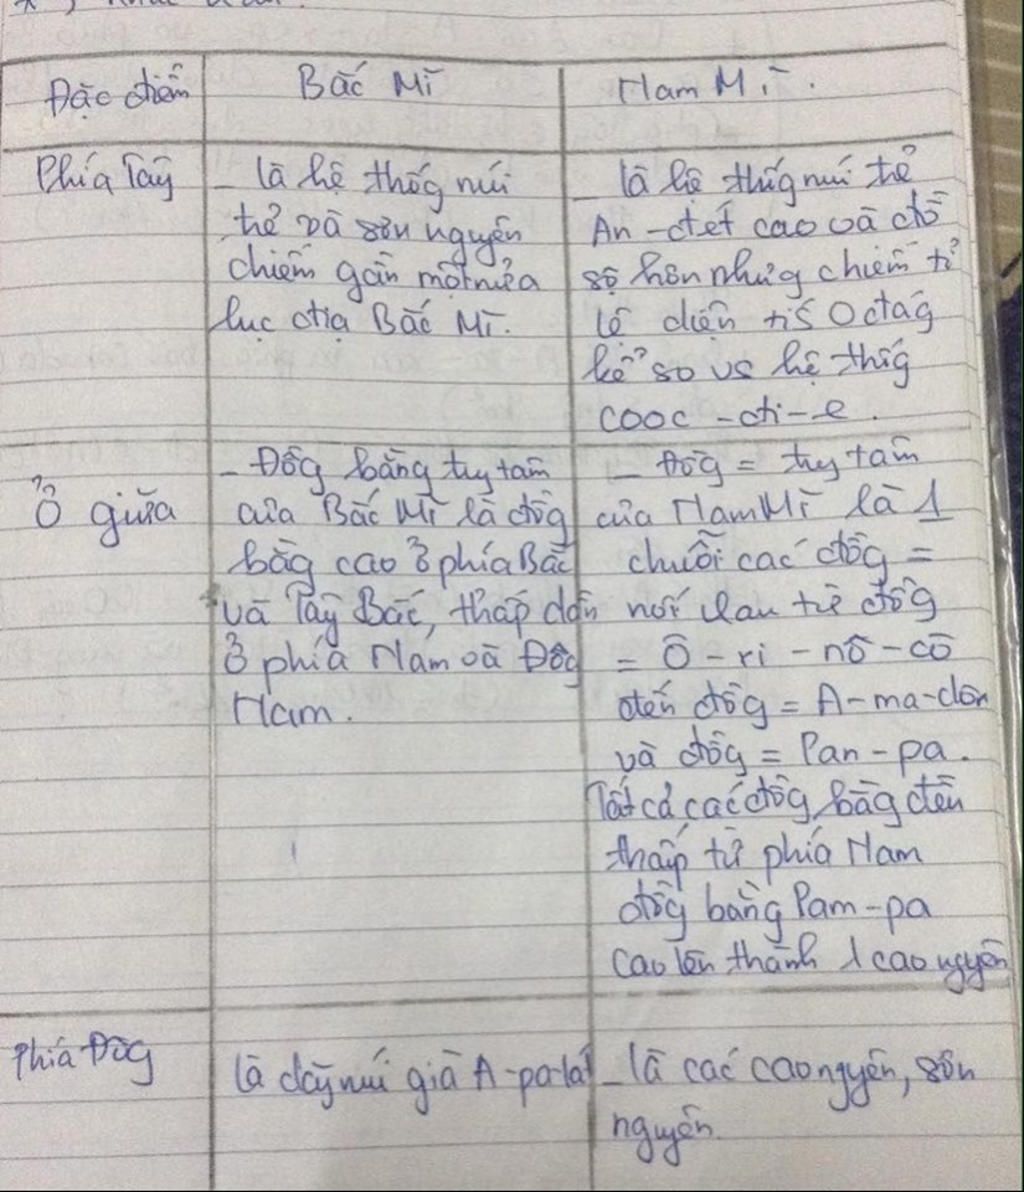 Đặc điểm
Bắc Mĩ
Nam Mĩ.
Phía Tây
- là hệ thốg núi
trẻ và sơn nguyên
chiếm gần một nửa
lục địa Bắc Mĩ.
- là hệ thốg núi trẻ
An-đét cao và đồ
sộ hơn nhưg chiếm tỉ
lệ diện tíś 0 đág
kể so vs hệ thốg
cooc-đi-e.
Ở giữa
- Đồg bằng tuy tâm
của Bắc Mĩ là đồg
bằg cao ở phía Bắc
và Tây Bắc, thấp dần
ở phía Nam và Đôg
Nam.
- Đồg = tuy tâm
của Nam Mĩ là 1
chuỗi các đồg =
nối nhau từ đồg
= Ô-ri-nô-cô
đến đồg = A-ma-dôn
và đồg = Pan-pa.
Tất cả các đồg bằg đến
thấp từ phía Nam
đồg bằng Pam-pa
cao lên thành 1 cao nguyên
Phía Đôg
là dãy núi già A-pa-lát
- là các cao nguyên, sơn
nguyên.